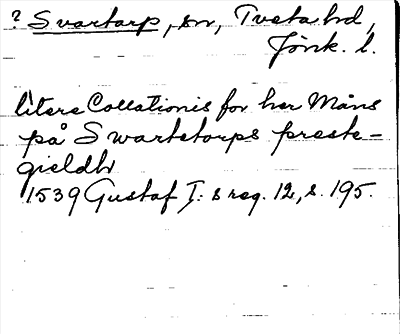 ? Svartarp, sn, Tveta hd,
Jönk. l.
litere Collationis for her Måns
på Swartetorps preste-
gieldh
1539 Gustaf I:s reg. 12, s. 195.